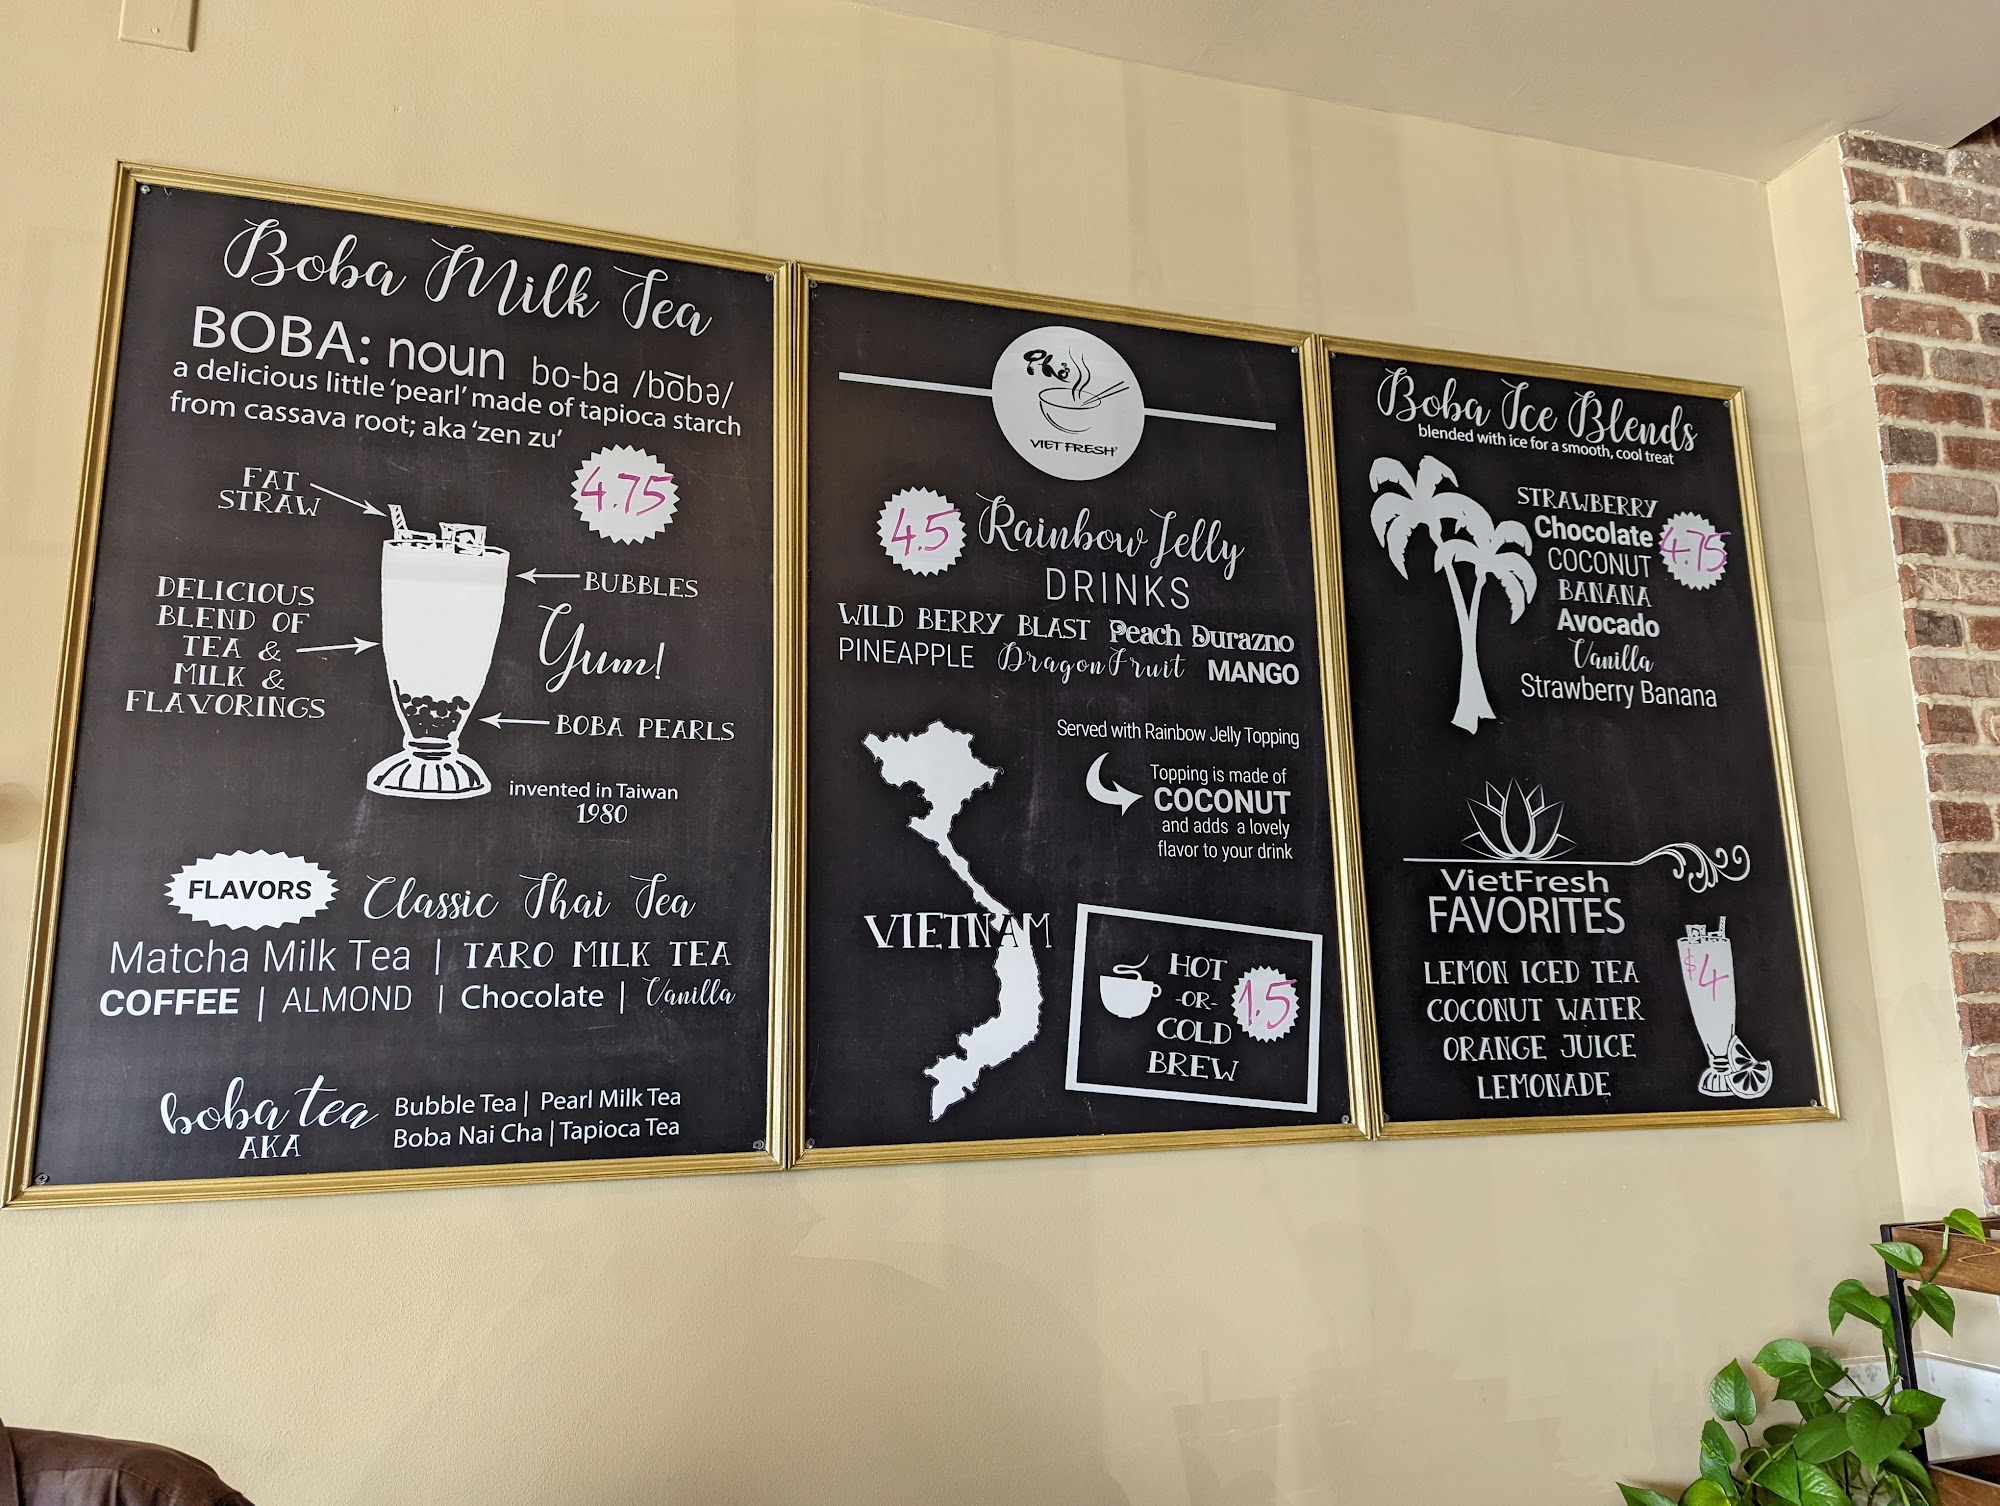 Boba Milk Tea
BOBA: noun bo-ba /bōbə/
a delicious little 'pearl' made of tapioca starch
from cassava root; aka 'zen zu'
4.75
FAT
STRAW
BUBBLES
DELICIOUS
BLEND OF
TEA &
MILK &
FLAVORINGS
Yum!
BOBA PEARLS
invented in Taiwan
1980
FLAVORS Classic Thai Tea
Matcha Milk Tea | TARO MILK TEA
COFFEE | ALMOND | Chocolate | Vanilla
boba tea
AKA
Bubble Tea | Pearl Milk Tea
Boba Nai Cha | Tapioca Tea
Phở
VIET FRESH
4.5 Rainbow Jelly
DRINKS
WILD BERRY BLAST Peach Durazno
PINEAPPLE Dragon Fruit MANGO
Served with Rainbow Jelly Topping
Topping is made of
COCONUT
and adds a lovely
flavor to your drink
VIETNAM
HOT
-OR-
COLD
BREW
1.5
Boba Ice Blends
blended with ice for a smooth, cool treat
STRAWBERRY
Chocolate 4.75
COCONUT
BANANA
Avocado
Vanilla
Strawberry Banana
VietFresh
FAVORITES
LEMON ICED TEA
COCONUT WATER
ORANGE JUICE
LEMONADE
$4